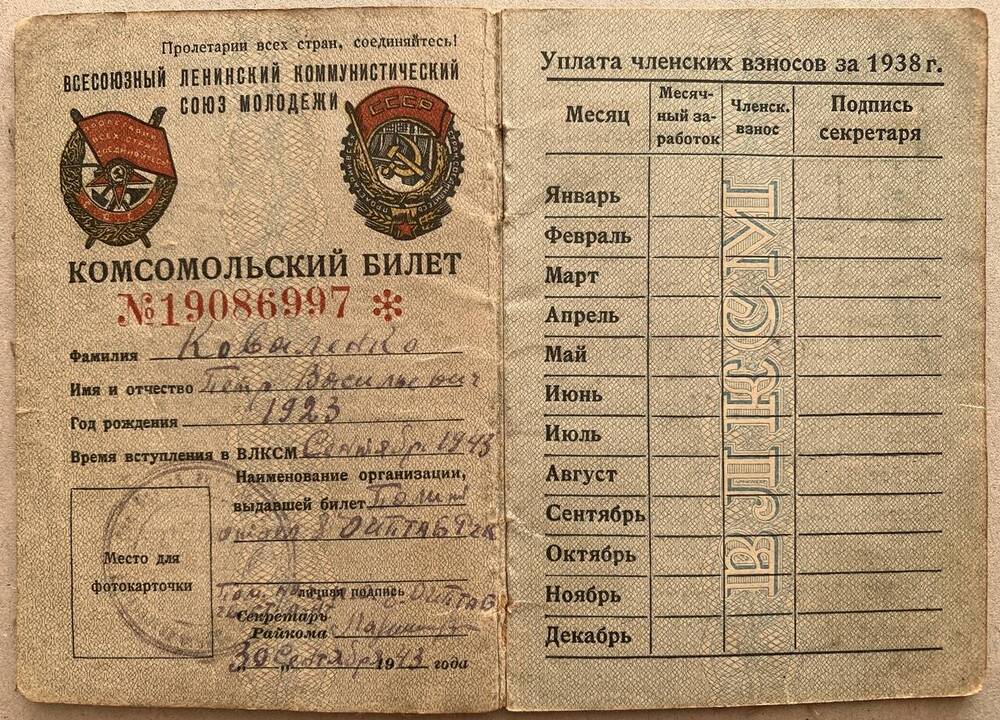 Пролетарии всех стран, соединяйтесь!
ВСЕСОЮЗНЫЙ ЛЕНИНСКИЙ КОММУНИСТИЧЕСКИЙ
СОЮЗ МОЛОДЕЖИ
ПРОЛЕТАРИИ
ВСЕХ СТРАН
СОЕДИНЯЙТЕСЬ
СССР
СССР
КОМСОМОЛЬСКИЙ БИЛЕТ
№19086997 *
Фамилия Коваленко
Имя и отчество Петр Васильевич
Год рождения 1923
Время вступления в ВЛКСМ Сентябрь 1943
Наименование организации,
выдавшей билет Полит
отдел 8 ОИПТАБР
Место для
фотокарточки
личная подпись
Секретарь
Райкома
30 „ Сентября 1943 года
Уплата членских взносов за 1938 г.
Месяц
Месяч-
ный за-
работок
Членск.
взнос
Подпись
секретаря
Январь
Февраль
Март
Апрель
Май
Июнь
Июль
Август
Сентябрь
Октябрь
Ноябрь
Декабрь
ВЛКСМ